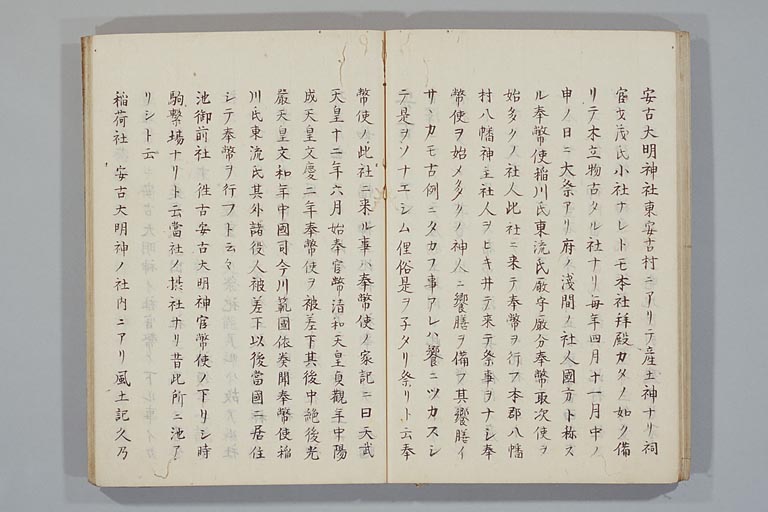 安古大明神社東安古村ニアリテ産土神ナリ祠
官戈茂氏小社ナレトモ本社拝殿カタノ如ク備
リテ木立物古タル社ナリ毎年四月十一月中ノ
申ノ日ニ大祭アリ府ノ浅間ノ社人國方ト称ス
ル奉幣使稲川氏東流氏廠守廠分奉幣取次使ヲ
始多クノ社人此社ニ来テ奉幣ヲ行フ本郡八幡
村八幡神主社人ヲヒキ井テ来テ祭事ヲナシ奉
幣使ヲ始メ多クノ神人ニ饗膳ヲ備フ其饗膳イ
サヽカモ古例ニタカフ事アレハ饗ニツカスシ
テ是ヲソナエシム俚俗是ヲ子タリ祭リト云奉
幣使ノ此社ニ来ル事ハ奉幣使ノ家記ニ曰天武
天皇十二年六月始奉官幣清和天皇貞觀年中陽
成天皇文慶二年奉幣使ヲ被差下其後中絶後光
嚴天皇文和年中國司今川範國依葵聞奉幣使稲
川氏東流氏其外諸役人被差下以後當國ニ居住
シテ奉幣ヲ行フト云々
池御前社 徃古安古大明神官幣使ノ下リシ時
駒繋場ナリト云當社ノ摂社ナリ昔此所ニ池ア
リシト云
稲荷社 安古大明神ノ社内ニアリ風土記久乃